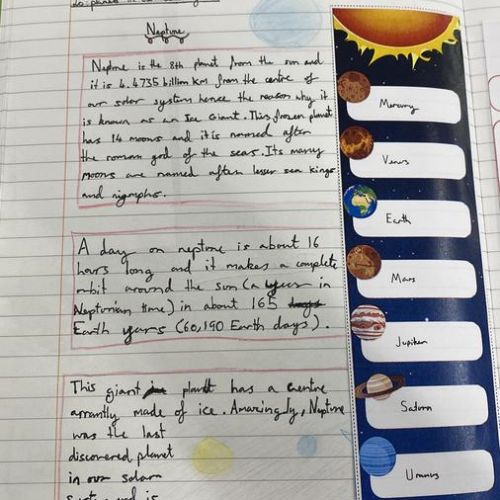 Neptune
Neptune is the 8th planet from the sun and
it is 4.4735 billion km from the centre of
our solar system hence the reason why it
is known as an Ice Giant. This frozen planet
has 14 moons and it is named after
the roman god of the seas. Its many
moons are named after lesser sea kings
and nymphs.
A day on neptune is about 16
hours long and it makes a complete
orbit around the sun (a year in
Neptunian time) in about 165
Earth years (60,190 Earth days).
This giant planet has a centre
made of ice. Amazingly, Neptune
was the last
discovered planet
in our solar
and is
Mercury
Venus
Earth
Mars
Jupiter
Saturn
Uranus